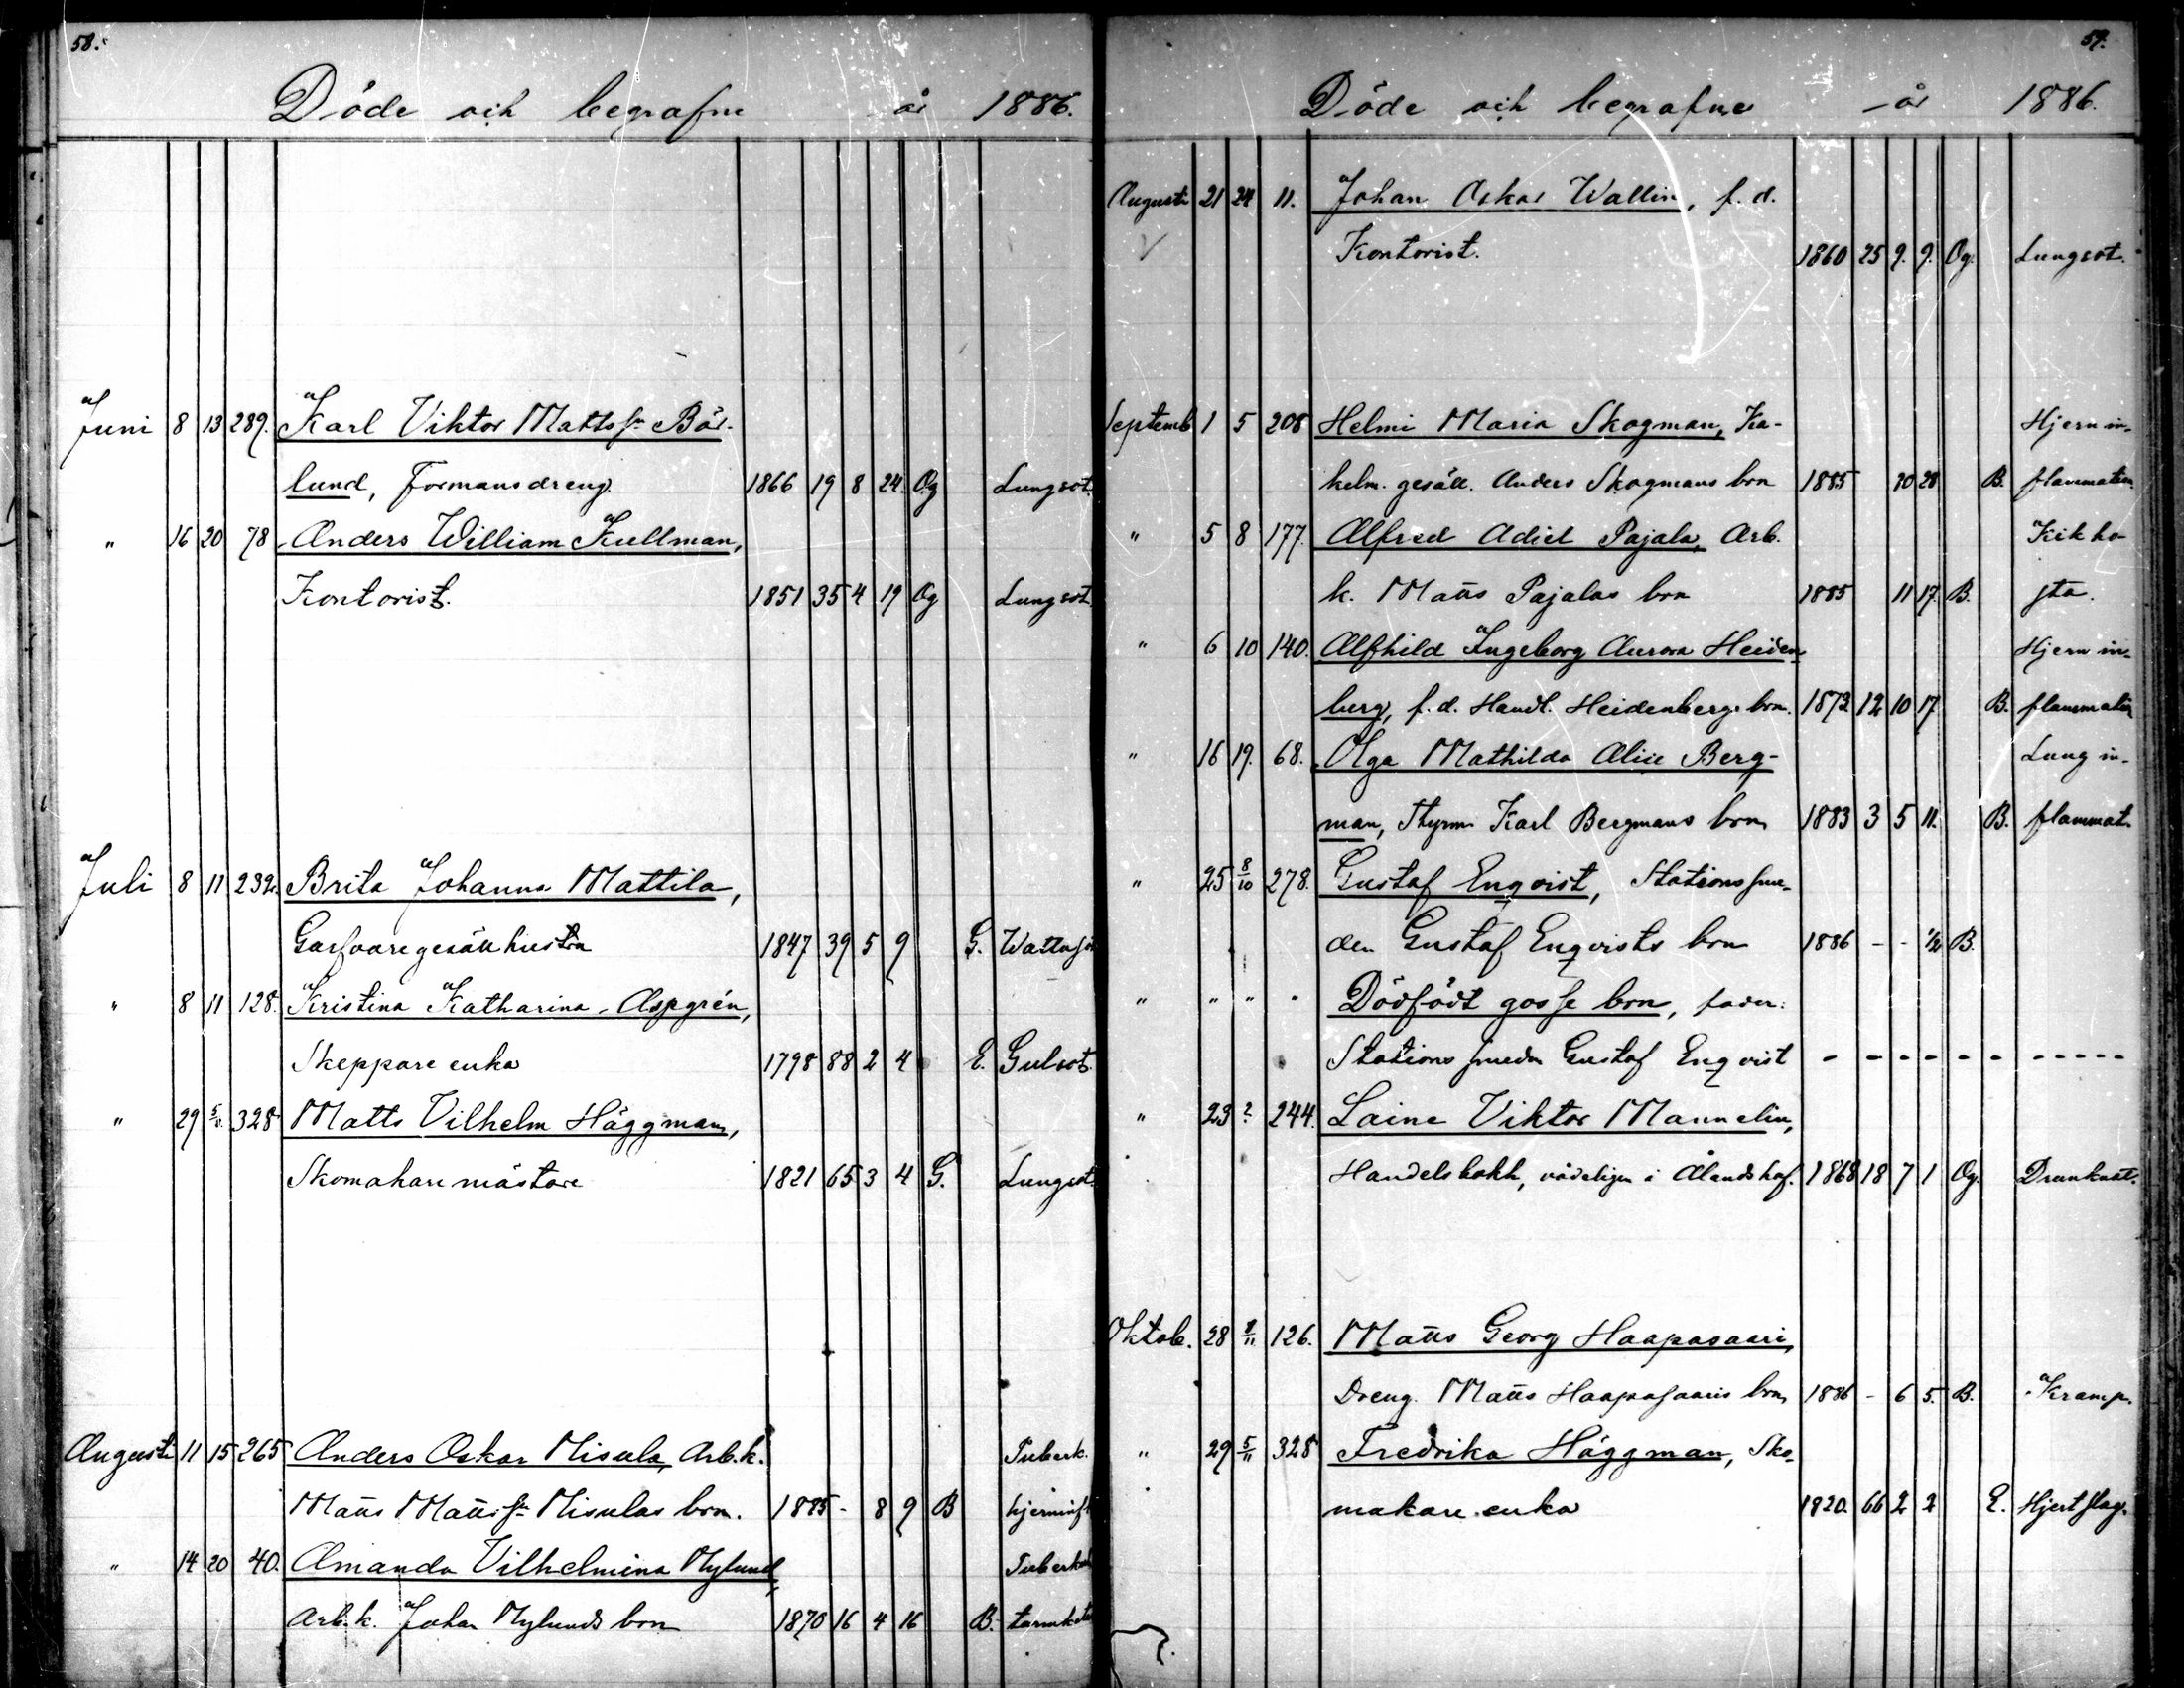 58.
Döde och begrafne år 1886.
Juni 8 13 289. Karl Viktor Mattsſn Bär-
lund, Formansdreng. 1866 19 8 24. Og Lungsot.
" 16 20 78 Anders William Kullman,
Kontorist. 1851 35 4 19 Og Lungsot.
Juli 8 11 232. Brita Johanna Mattila,
Garfvaregesällhustru 1847 39 5 9 G.
" 8 11 128. Kristina Katharina Aspgrén,
Skeppare enka 1798 88 2 4 E. Gulsot.
" 29 328 Matts Vilhelm Häggman,
Skomakare mästare 1821 65 3 4 G. Lungsot.
Augusti 11 15 265 Anders Oskar Nisula, Arb.k. Tuberk.
Matts Mattsſn Nisulas brn. 1885 - 8 9 B
" 14 20 40. Amanda Vilhelmina Nylund,
Arb.k. Johan Nylunds brn 1870 16 4 16 B.
59.
Döde och begrafne år 1886.
Augusti 21 24 11. Johan Oskar Wallin, f. d.
Kontorist. 1860 25 9. 9. Og. Lungsot.
Septemb 1 5 208 Helmi Maria Skogman, Ka- Hjern in-
kelm. gesäll. Anders Skogmans brn 1885 10 28 B. flammation.
" 5 8 177. Alfred Adiel Pajala, Arb. Kikho-
k. Matts Pajalas brn 1885 11 17. B. sta.
" 6 10 140. Alfhild Ingeborg Aurora Heiden Hjern in-
berg, f. d. Handl. Heidenbergs brn. 1873 12 10 17 B. flammation
" 16 19. 68. Olga Mathilda Alice Berg- Lung in-
man, Styrm Karl Bergmans brn 1883 3 5 11. B. flammat.
" 25 8/10 278. Gustaf Enqvist, Stationssme-
den Gustaf Enqvists brn 1886 - - 1/2 B.
" " " " Dödfödt gosse brn, fader:
Stations smeden Gustaf Enqvist - - - - - - - - - - -
" 23 ? 244. Laine Viktor Mannelin,
Handelsbokh, vådeligen i Ålandshaf. 1868 18 7 1 Og. Drunknat.
Oktob. 28 8/11 126. Matts Georg Haapasaari,
Dreng. Matts Haapasaaris brn 1886 - 6 5. B. Kramp.
" 29 5/11 328 Fredrika Häggman, Sko-
makare enka 1820. 66 2 2 E. Hjertslag.